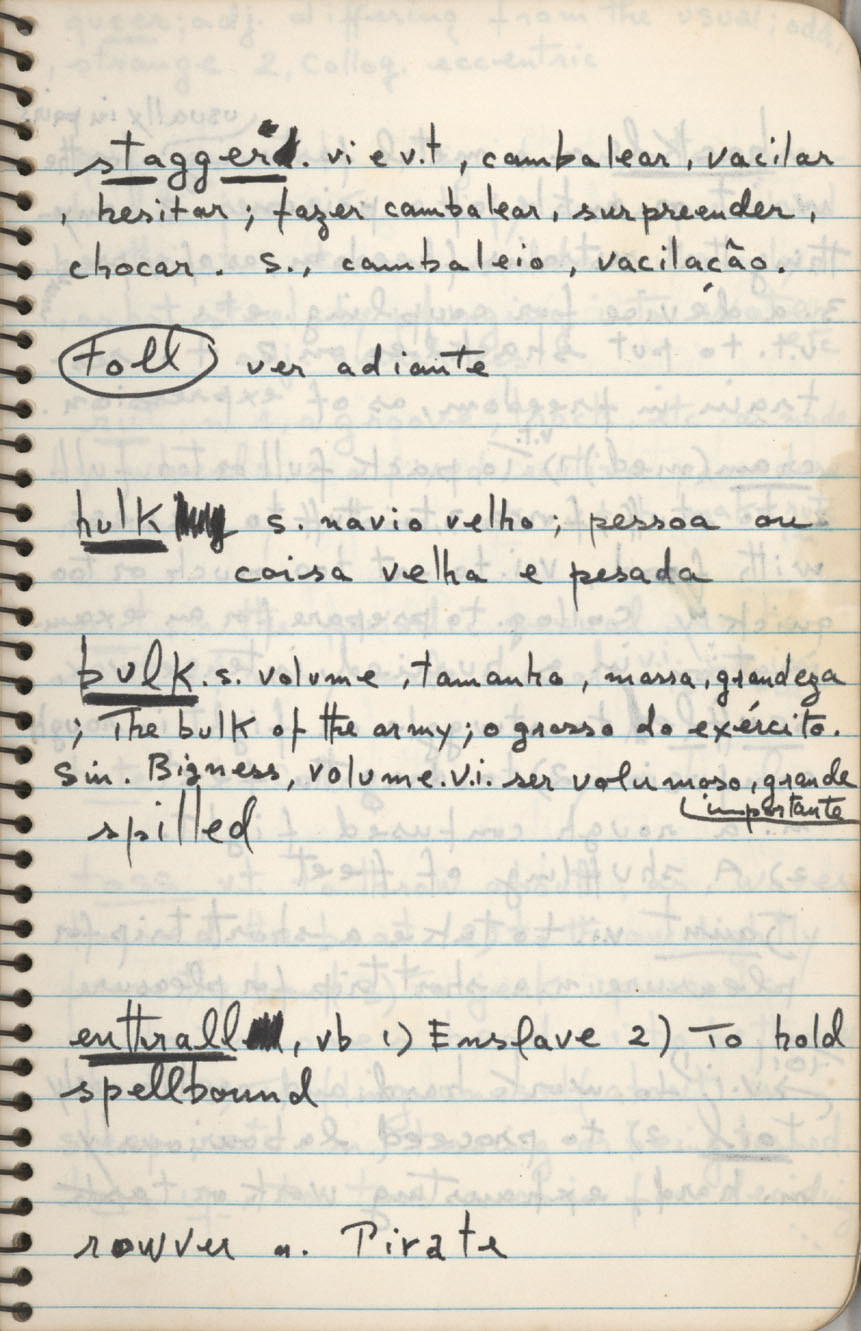 stagger. vi e v.t, cambalear, vacilar
, hesitar; fazer cambalear, surpreender,
chocar. s., cambaleio, vacilação.
toll ver adiante
hulk s. navio velho; pessoa ou
coisa velha e pesada
bulk. s. volume, tamanho, massa, grandeza
; The bulk of the army; o grosso do exército.
Sin. Bigness, volume. v.i. ser volumoso, grande
importante
spilled
enthrall, vb 1) Enslave 2) To hold
spellbound
rowver n. Pirate